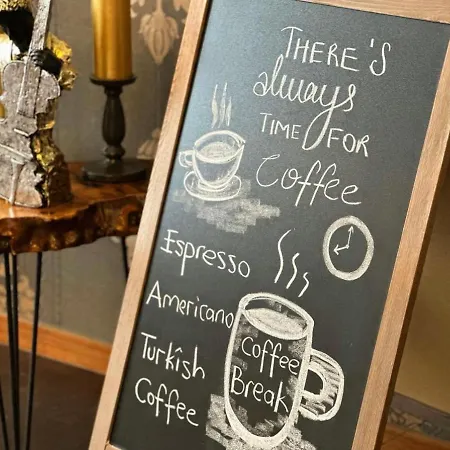 THERE'S
always
TIME FOR
Coffee
Espresso
Americano
Turkîsh
Coffee
Coffee
Break